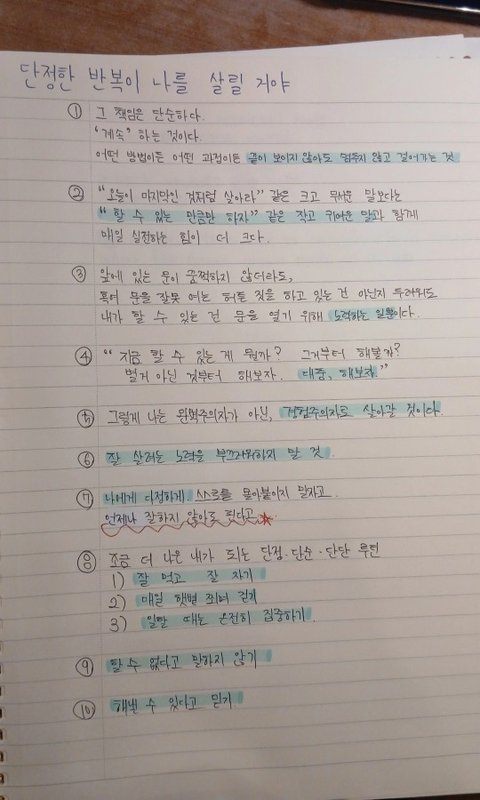 단정한 반복이 나를 살릴 거야
① 그 책임은 단순하다.
'계속' 하는 것이다.
어떤 방법이든 어떤 과정이든 끝이 보이지 않아도 멈추지 않고 걸어가는 것
② "오늘이 마지막인 것처럼 살아라" 같은 크고 무서운 말보다는
"할 수 있는 만큼만 하자" 같은 작고 귀여운 말과 함께
매일 실천하는 힘이 더 크다.
③ 앞에 있는 문이 꿈쩍하지 않더라도,
혹여 문을 잘못 여는 허튼 짓을 하고 있는 건 아닌지 두려워도
내가 할 수 있는 건 문을 열기 위해 노력하는 일뿐이다.
④ "지금 할 수 있는 게 뭘까? 그거부터 해볼까?
별거 아닌 것부터 해보자. 대충, 해보자."
⑤ 그렇게 나는 완벽주의자가 아닌, 경험주의자로 살아갈 것이다.
⑥ 잘 살려는 노력을 부끄러워하지 말 것
⑦ 나에게 다정하게 스스로를 몰아붙이지 말자고.
언제나 잘하지 않아도 된다고
⑧ 조금 더 나은 내가 되는 단정·단순·단단 루틴
1) 잘 먹고 잘 자기
2) 매일 햇볕 쬐며 걷기
3) 일할 때는 온전히 집중하기
⑨ 할 수 없다고 말하지 않기
⑩ 해낼 수 있다고 믿기